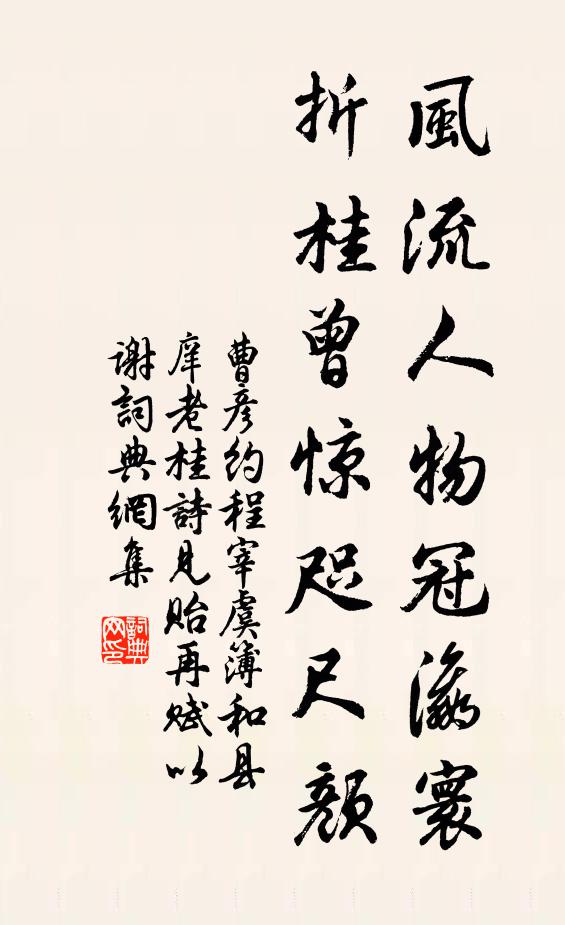 風流人物冠瀛寰
折桂曾惊咫尺顏
曹彥約程宰虞簿和县
庠老桂詩見貽再赋以
谢詞典網集
詞典
网印